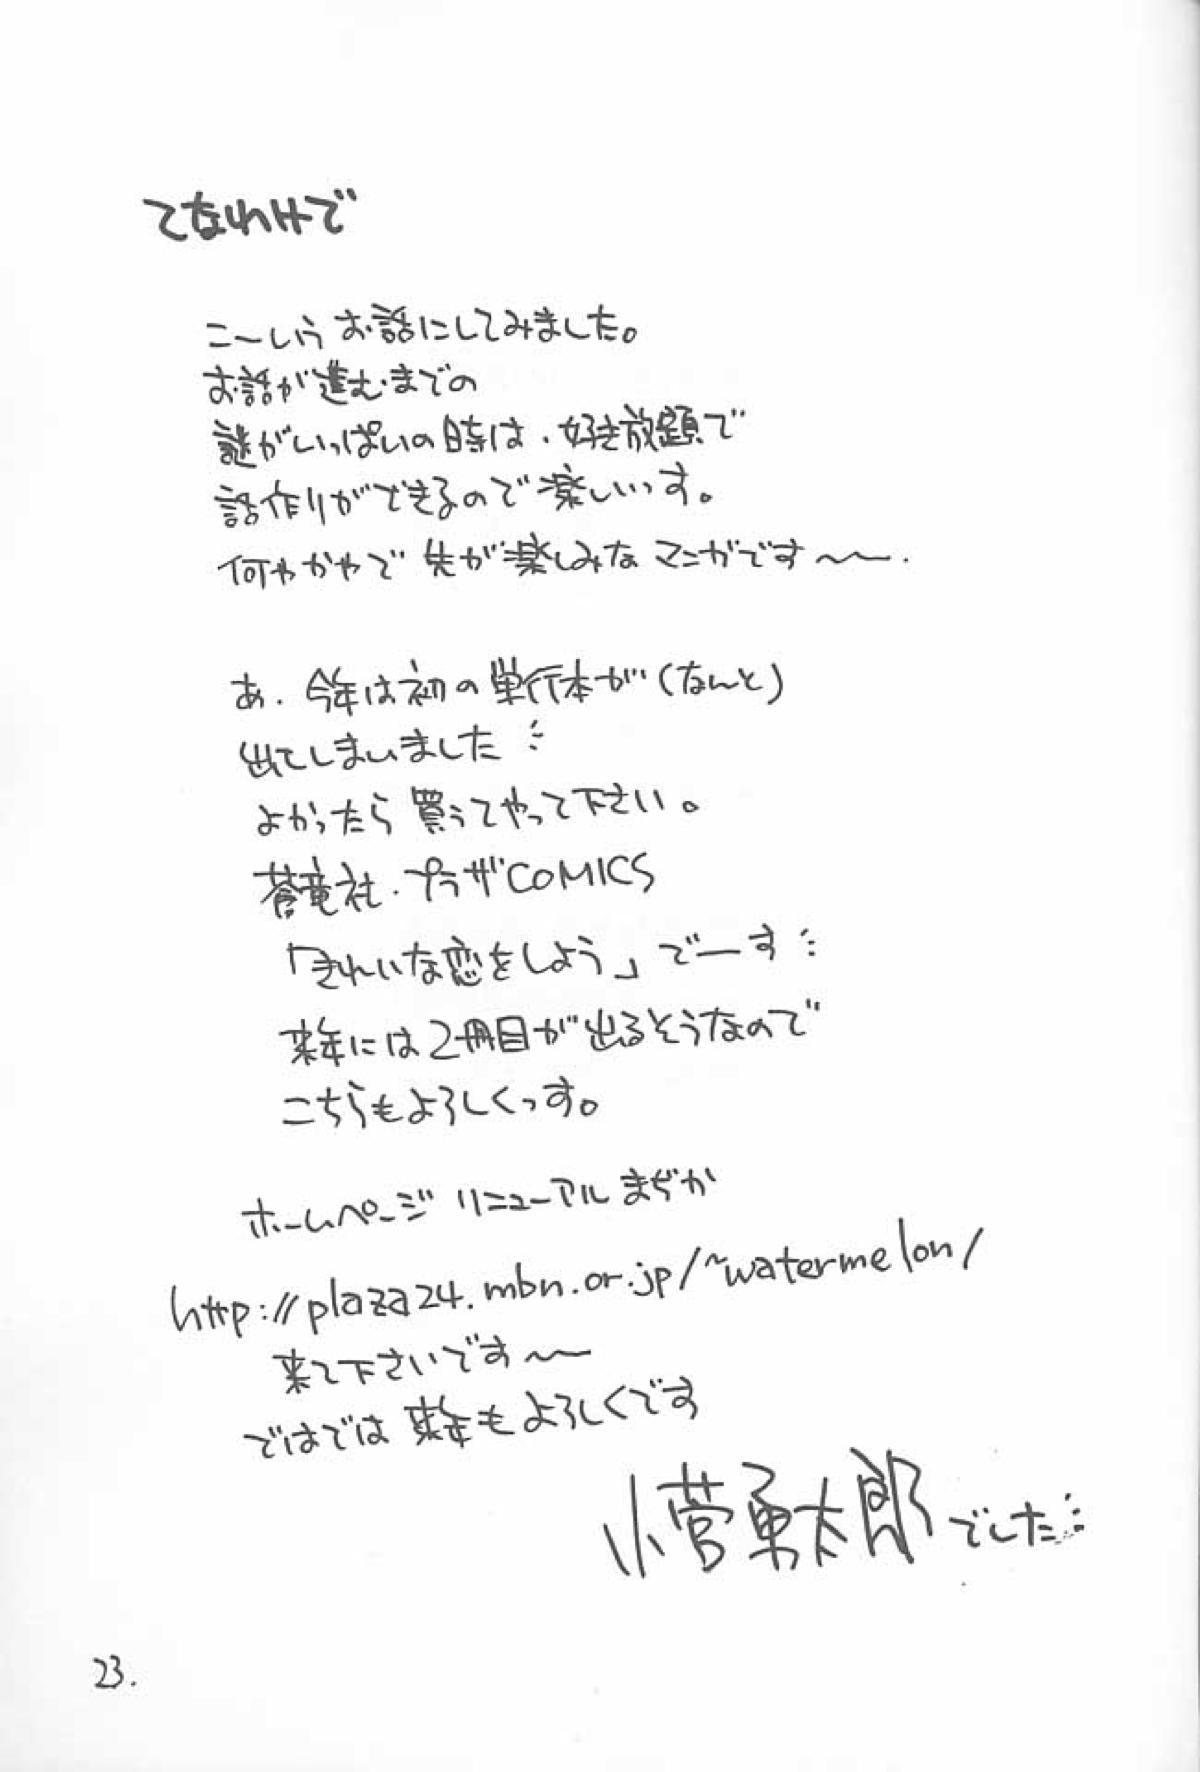 てなわけで
こーいうお話にしてみました。
お話が進むまでの
謎がいっぱいの時は、好き放題で
話作りができるので楽しいっす。
何やかやで先が楽しみなマンガです〜〜.
あ、今年は初の単行本が(なんと)
出てしまいました
よかったら買ってやって下さい。
蒼竜社・プラザCOMICS
「きれいな恋をしよう」でーす
来年には2冊目が出るそうなので
こちらもよろしくっす。
ホームページリニューアルまぢか
http://plaza24.mbn.or.jp/~watermelon/
来て下さいです〜〜
ではでは来年もよろしくです
小菅勇太郎でした
23.